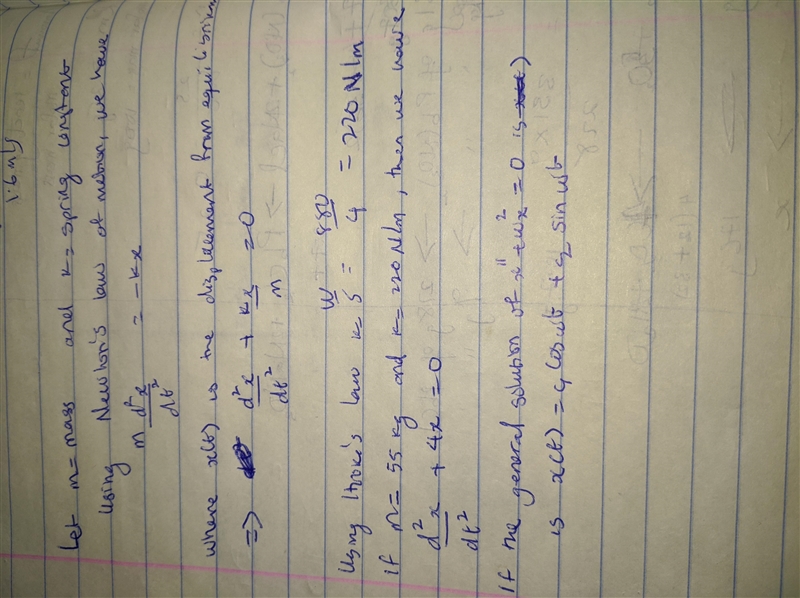 1.6 m/s
Let m = mass and k = spring constant
Using Newton's law of motion, we have
m d²x/dt² = -kx
where x(t) is the displacement from equilibrium
=> d²x/dt² + kx/m = 0
Using Hooke's law k = W/s = 880/4 = 220 N/m
If m = 55 kg and k = 220 N/m, then we have
d²x/dt² + 4x = 0
If the general solution of x'' + ωx² = 0 is
is x(t) = c₁ cos ωt + c₂ sin ωt